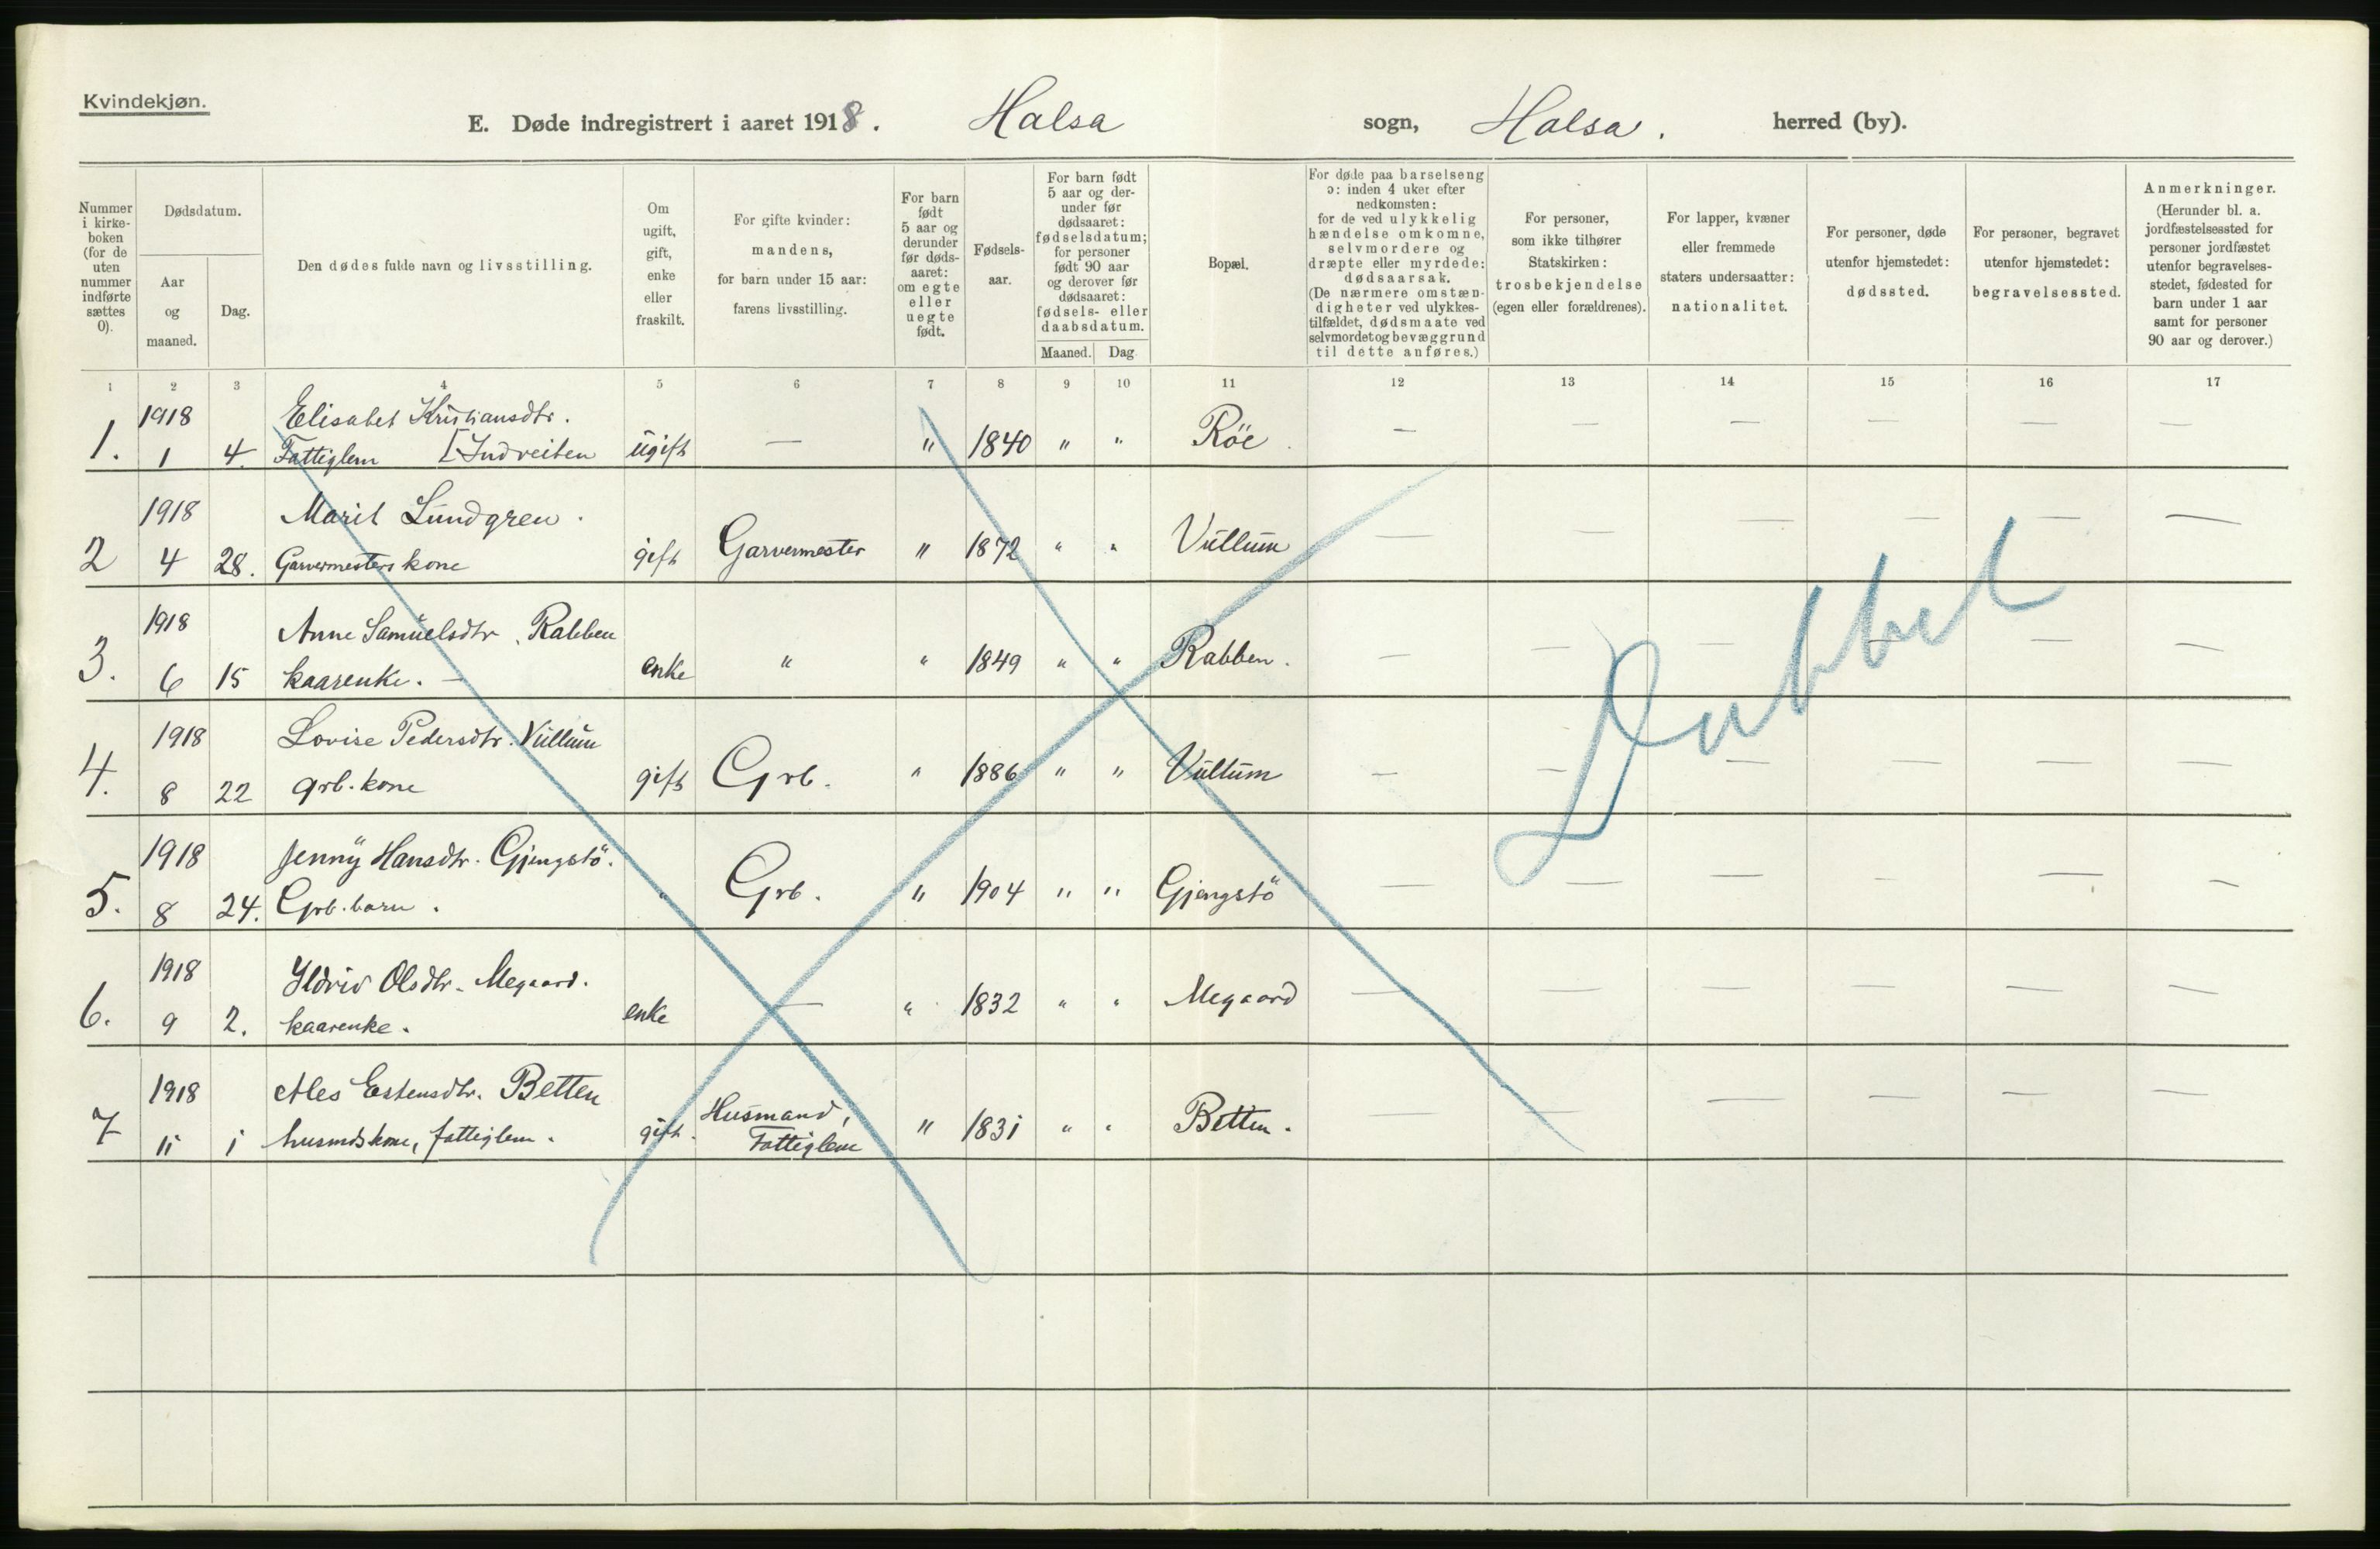 Kvindekjøn.
E. Døde indregistrert i aaret 1918. Halsa sogn, Halsa. herred (by).
Nummer i kirke-boken (for de uten nummer indførte sættes 0).
Dødsdatum.
Aar og maaned.
Dag.
Den dødes fulde navn og livsstilling.
Om ugift, gift, enke eller fraskilt.
For gifte kvinder: mandens, for barn under 15 aar: farens livsstilling.
For barn født 5 aar og derunder før døds-aaret: om egte eller uegte født.
Fødsels-aar.
For barn født 5 aar og der-under før dødsaaret: fødselsdatum; for personer født 90 aar og derover før dødsaaret: fødsels- eller daabsdatum.
Maaned. Dag
Bopæl.
For døde paa barselseng ɔ: inden 4 uker efter nedkomsten: for de ved ulykkelig hændelse omkomne, selvmordere og dræpte eller myrdede: dødsaarsak. (De nærmere omstæn-digheter ved ulykkes-tilfældet, dødsmaate ved selvmordet og bevæggrund til dette anføres.)
For personer, som ikke tilhører Statskirken: trosbekjendelse (egen eller forældrenes).
For lapper, kvæner eller fremmede staters undersaatter: nationalitet.
For personer, døde utenfor hjemstedet: dødssted.
For personer, begravet utenfor hjemstedet: begravelsessted.
Anmerkninger. (Herunder bl. a. jordfæstelsessted for personer jordfæstet utenfor begravelses-stedet, fødested for barn under 1 aar samt for personer 90 aar og derover.)
1 2 3 4 5 6 7 8 9 10 11 12 13 14 15 16 17
1918 Elisabet Kristiansdtr.
1. 1 4. Fattiglem [Indreiten ugift — " 1840 " " Röe. — — — — — —
1918 Marit Lundgren.
2 4 28. Garvermesters kone gift Garvermester " 1872 " " Vullum — — — — — —
1918 Anne Samuelsdtr. Rabben
3. 6 15 kaarenke. — enke " " 1849 " " Rabben. — — — — — —
1918 Lovise Pedersdtr. Vullum
4. 8 22 grb. kone gift Grb. " 1886 " " Vullum — — — — — —
1918 Jenny Hansdtr. Gjengstö.
5. 8 24. Grb. barn. " Grb. " 1904 " " Gjengstö — — — — — —
1918 Ildrid Olsdtr. Megaard.
6. 9 2. kaarenke. enke — " 1832 " " Megaard — — — — — —
1918 Ales Estensdtr. Betten
7 11 1 husmdskone, fattiglem. gift. Husmand, Fattiglem " 1831 " " Betten. — — — — — —
Dubbel